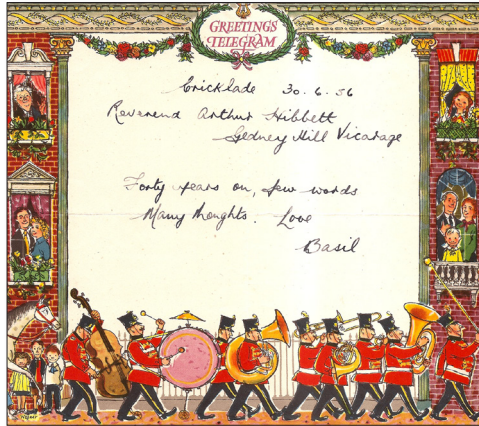 GREETINGS
TELEGRAM
Cricklade 30.6.56
Reverend Arthur Hibbett
Gedney Hill Vicarage
Forty years on, few words
Many thoughts. Love
Basil